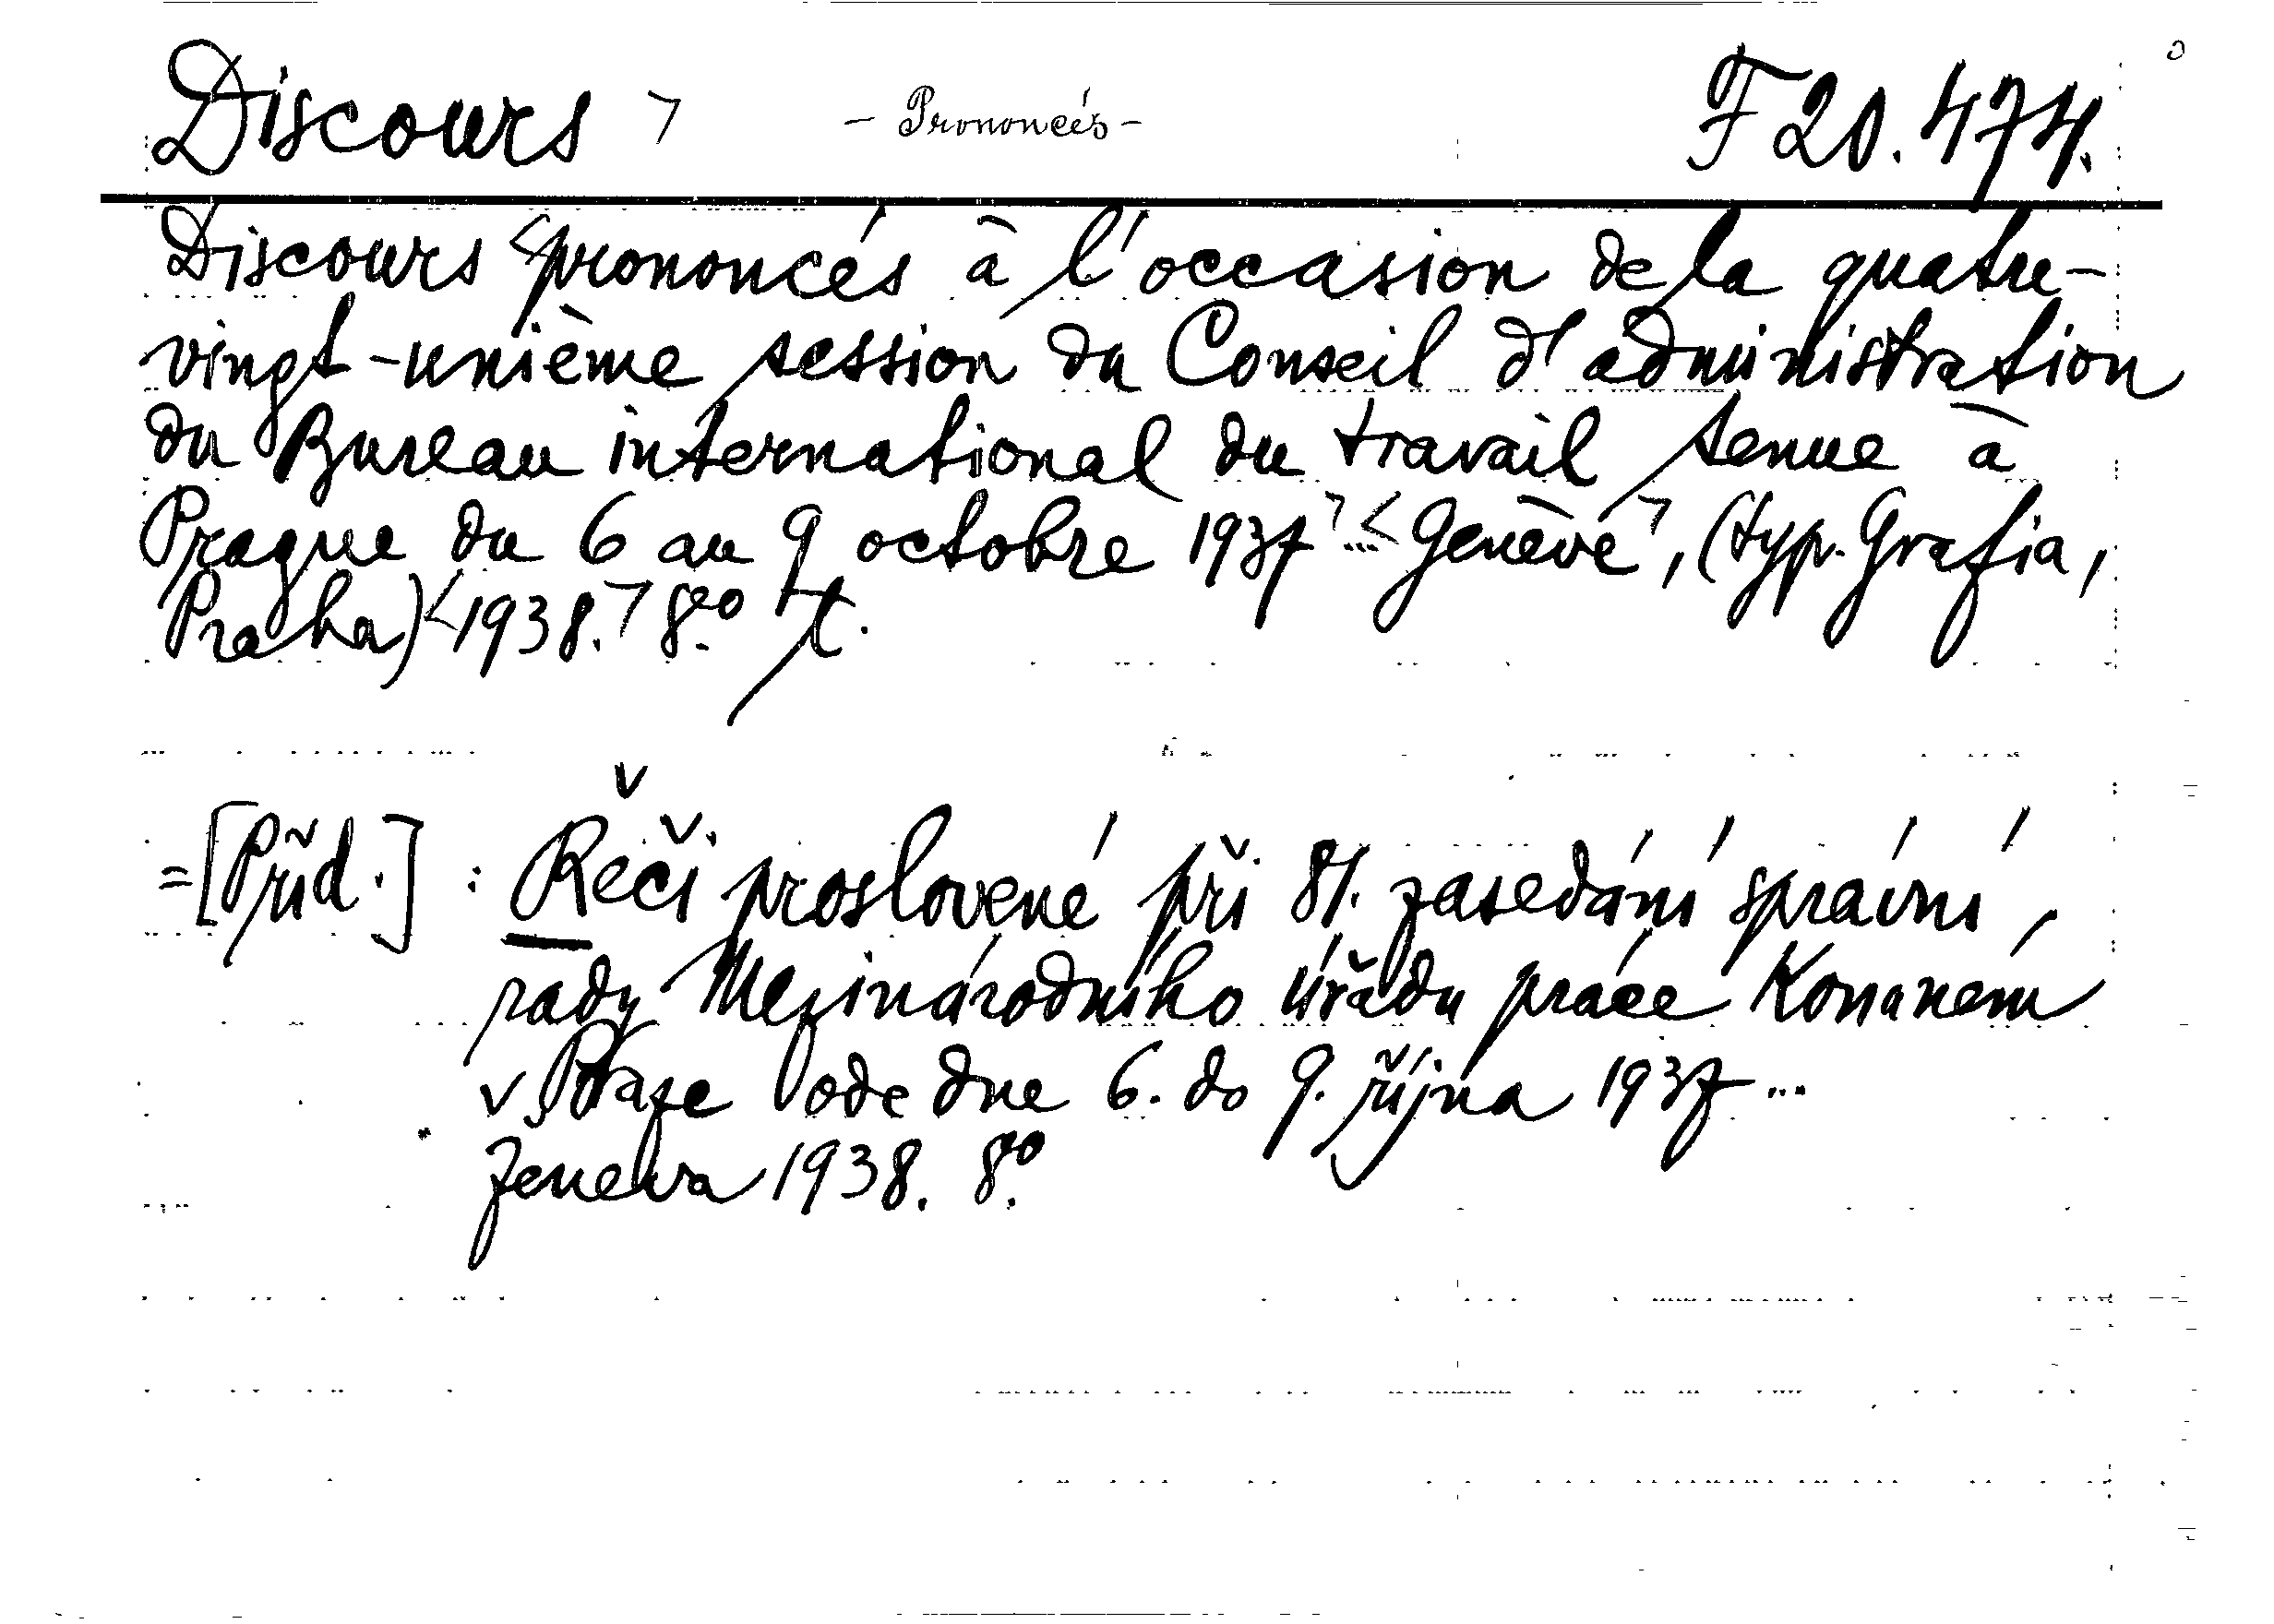 Discours ⁊ – Prononcés – F 20.474.
Discours <prononcés à l'occasion de la quatre-
vingt-unième session du Conseil d'administration
du Bureau international du travail tenue à
Prague du 6 au 9 octobre 1937⁊ ...< Genève⁊, (typ. Grafia,
Praha) <1938.⁊ 8o
=[Příd.] : Řeči proslovené při 81. zasedání správní
rady Mezinárodního úřadu práce Konaném
v Praze ode dne 6. do 9. října 1937 ...
Ženeva 1938. 8o.